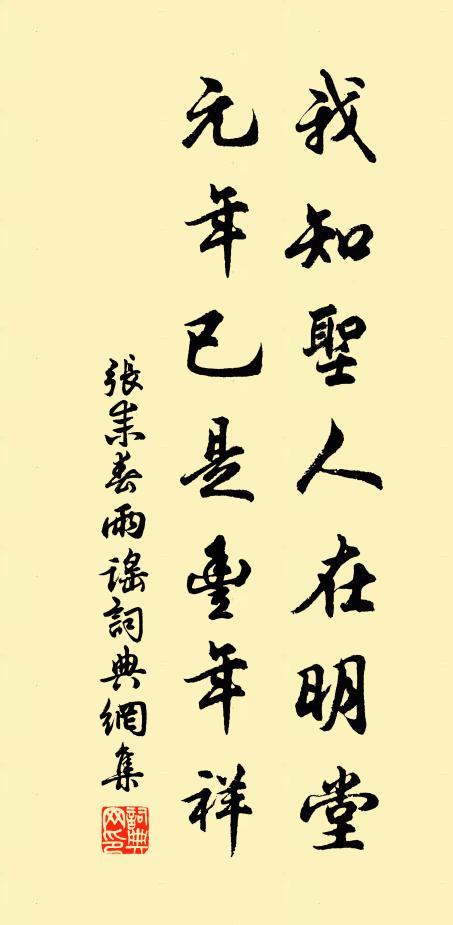 我知聖人在明堂
元年已是豐年祥
張耒春雨謠詞典網集
詞典网印